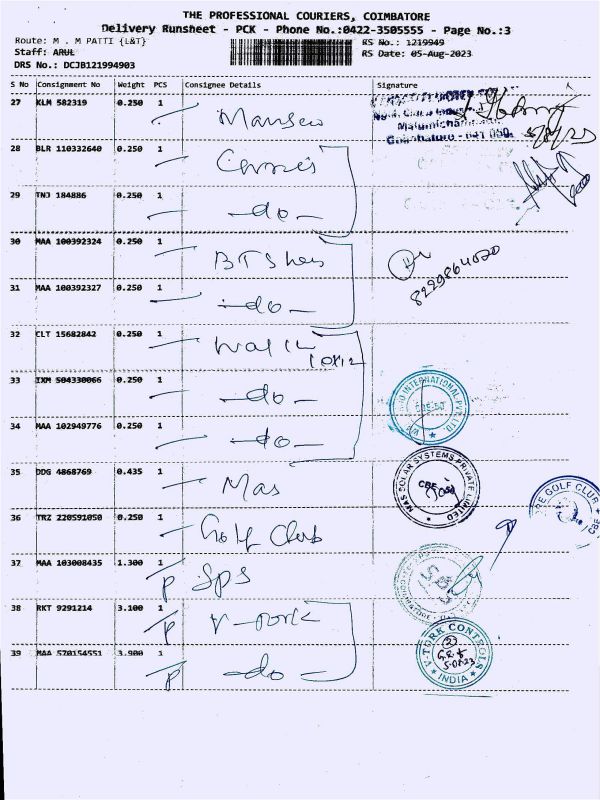 THE PROFESSIONAL COURIERS, COIMBATORE
Delivery Runsheet - PCK - Phone No.:0422-3505555 - Page No.:3
Route: M . M PATTI {L&T}
RS No.: 1219949
Staff: ARUL
RS Date: 05-Aug-2023
DRS No.: DCJB121994903
S No Consignment No Weight PCS Consignee Details Signature
27 KLM 582319 0.250 1
28 BLR 110332640 0.250 1
29 TNJ 184886 0.250 1 -do-
30 MAA 100392324 0.250 1
8229864020
31 MAA 100392327 0.250 1 -do-
32 CLT 15682842 0.250 1
33 IXM 504330066 0.250 1 -do-
INTERNATIONAL PVT. LTD.
34 MAA 102949776 0.250 1 -do-
35 DDG 4868769 0.435 1 Mas
SOLAR SYSTEMS PRIVATE LIMITED
36 TRZ 220591050 0.250 1 Golf Club
GOLF CLUB
37 MAA 103008435 1.300 1 P SPS
38 RKT 9291214 3.100 1 P V-Tork
V-TORK CONTROLS
INDIA
39 MAA 570154551 3.900 1 P -do-